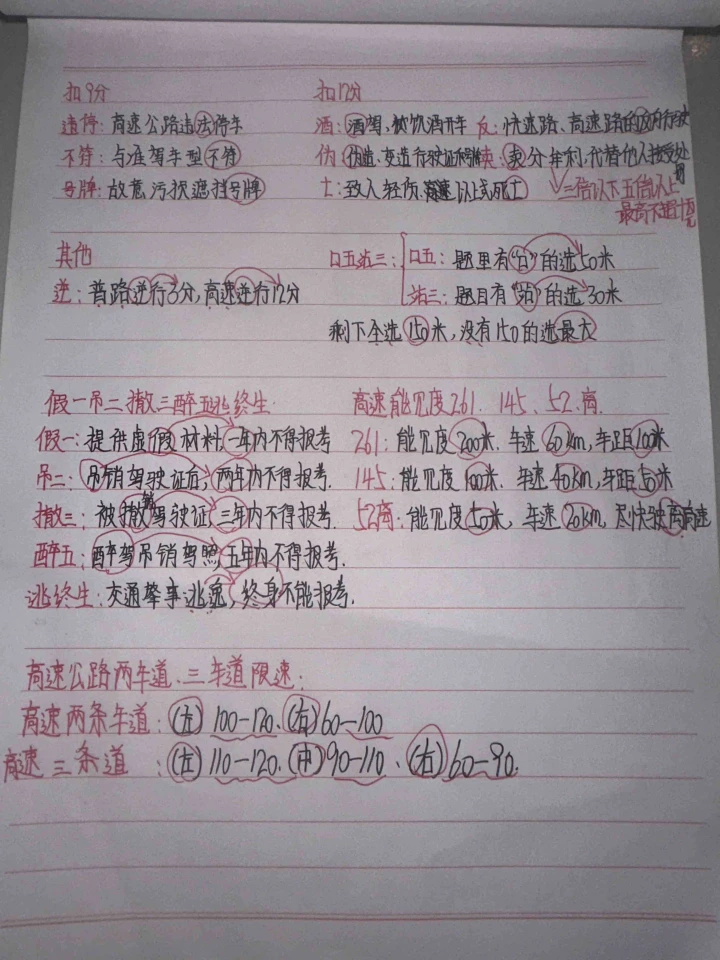 扣9分
违停：高速公路违法停车
不符：与准驾车型不符
号牌：故意污损遮挡号牌
扣12分
酒：酒驾、被饮酒开车 反：快速路、高速路的反向行驶
伪：伪造、变造行驶证 卖：卖分牟利，代替他人接受处罚
士：致人轻伤 以上或死亡 三倍以下五倍以上
最高不超过十万元
其他
逆：普路逆行3分，高速逆行12分
口五站三：
口五：题里有“口”的选50米
站三：题目有“站”的选30米
剩下全选150米，没有150的选最大
假一吊二撤三醉五逃终生
假一：提供虚假材料，一年内不得报考
吊二：吊销驾驶证后，两年内不得报考．
撤三：被撤销驾驶证，三年内不得报考．
醉五：醉驾吊销驾照，五年内不得报考．
逃终生：交通肇事逃逸，终身不能报考．
高速能见度261．145、52．离．
261：能见度200米．车速60km，车距100米
145：能见度100米．车速40km，车距50米
52离：能见度50米，车速20km，尽快驶离高速
高速公路两车道、三车道限速：
高速两条车道：（左）100-120、（右）60-100
高速三条道：（左）110-120、（中）90-110、（右）60-90．